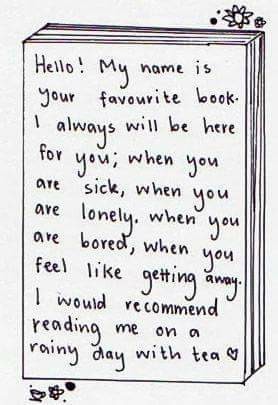 Hello! My name is
your favourite book.
I always will be here
for you; when you
are sick, when you
are lonely. when you
are bored, when you
feel like getting away.
I would recommend
reading me on a
rainy day with tea ♡